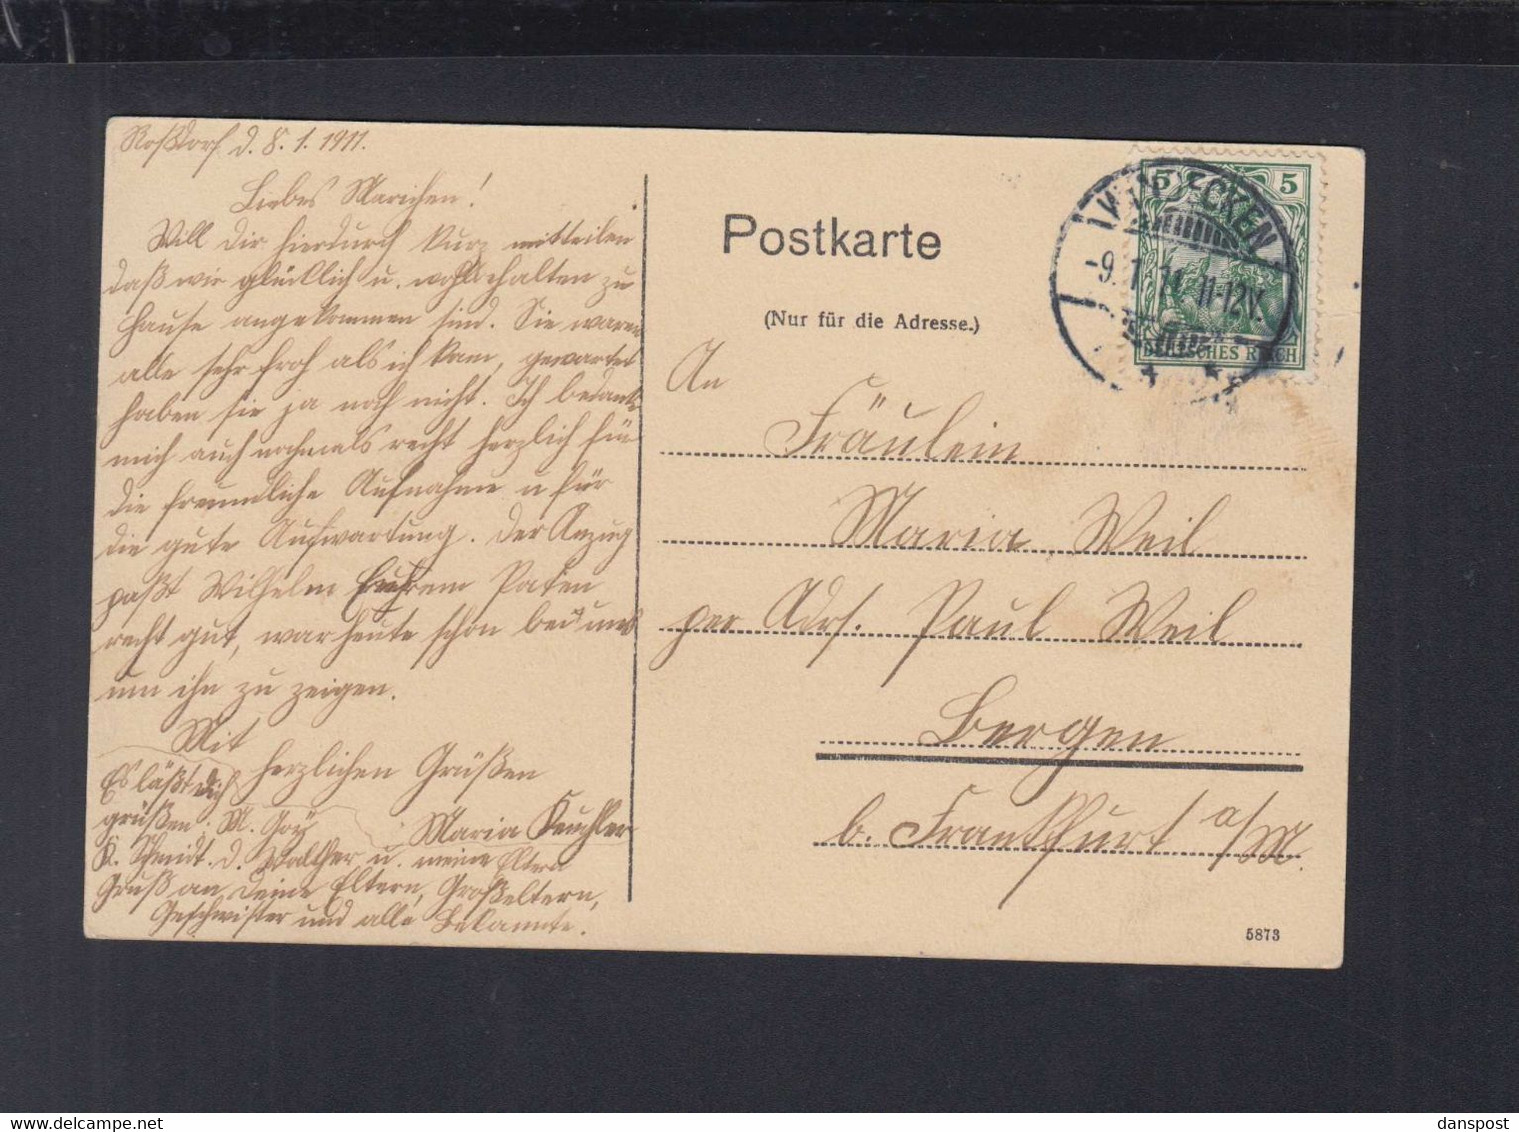 Roßdorf d. 8. 1. 1911.
Liebes Mariechen!
Will dir hierdurch kurz mitteilen
daß wir glücklich u. wohlbehalten zu
Hause angekommen sind. Sie waren
alle sehr froh als ich kam, gewartet
haben sie ja noch nicht. Ich bedanke
mich auch nochmals recht herzlich für
die freundliche Aufnahme u für
die gute Aufwartung. Der Anzug
paßt Wilhelm Eurem Paten
recht gut, war heute schon bei uns
um ihn zu zeigen.
Mit
herzlichen Grüßen
Maria Keuchler
Es läßt dich
grüßen: M. Goy
K. Schmidt. d. Walther u. meine Eltern
Gruß an deine Eltern, Großeltern,
Geschwister und alle Bekannte.
Postkarte
(Nur für die Adresse.)
5 5
DEUTSCHES REICH
WINDECKEN
-9.1.11. 11-12V.
An
Fräulein
Maria Weil
per Adrs. Paul Weil
Bergen
b. Frankfurt a/M.
5873
danspost